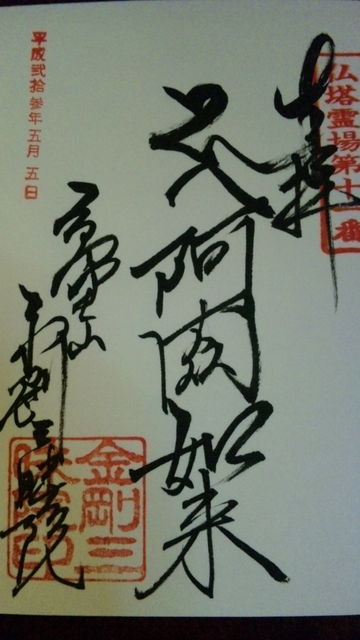 仏塔霊場第十一番
奉拝
阿閦如来
高野山
金剛三昧院
金剛三昧院印
平成弐拾参年五月五日